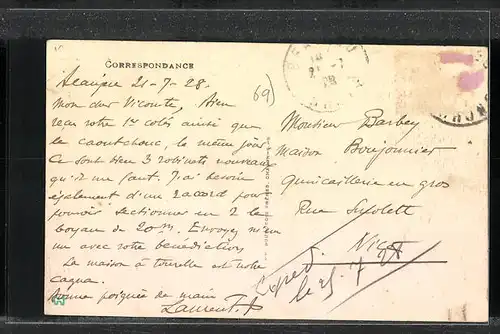 CORRESPONDANCE
21-7-28
mon cher Vicomte, Bien
reçu votre 1er colis ainsi que
le caoutchouc, le même jour
Ce sont bien 3 robinets nouveaux
qu'il me faut. J'ai besoin
également d'un raccord pour
pouvoir sectionner en 2 le
boyau de 20 m. Envoyez m'en
un avec votre bénédiction
La maison à tourelle est notre
cagna.
Bonne poignée de main
Laurent
69)
Monsieur Barbey
maison Boujonnier
Quincaillerie en gros
Rue
Exped.
le 25 7